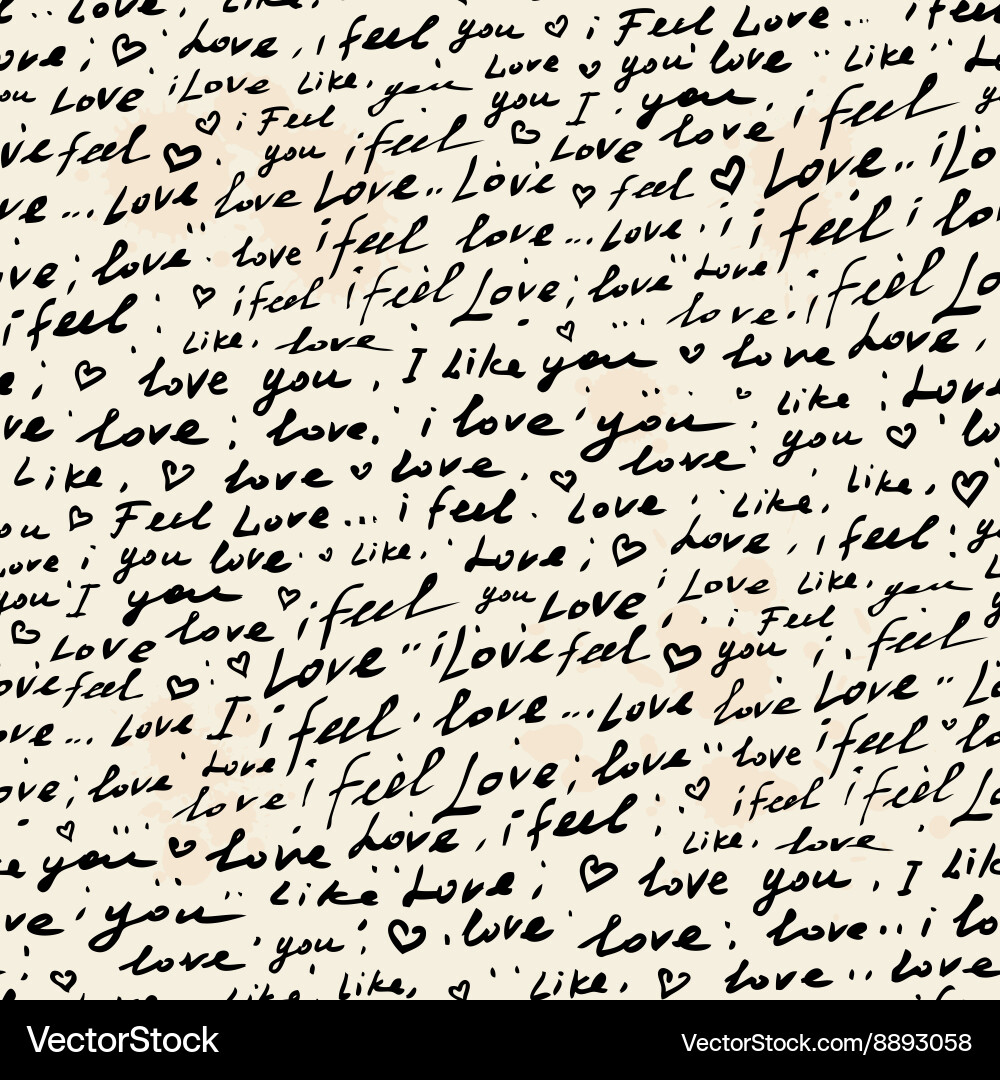 Love, Like.
ove; ♡ Love, i feel you ♡ i Feel Love... i feel
you Love i Love Like. you Love ♡ you love Like
♡ i Feel you I you. i feel
ve feel ♡. you i feel ♡ Love love
ve... Love love Love.. Love ♡ feel ♡ Love.. i Lo
ove; love love i feel love... Love. i i feel i lo
i feel ♡ i feel i feel Love; love Love i feel Lo
Like. love ♡ ... love.
e; ♡ love you. I Like you ♡ love Love,
ve love; love. i love you Like Love
Like, ♡ love ♡ love. ♡ love you ♡ lo
you ♡ Feel Love... i feel. Love Like, Like, ♡
Love i you love Like. Love; ♡ Love, i feel
you I you ♡ i feel you Love i Love Like. you
♡ Love love i Feel
ove feel ♡ ♡ Love i Love feel ♡ you i. feel
ove... Love I i feel love... Love love Love
ove; love Love i feel Love; love love i feel ♡ lo
♡ ... love ♡ i feel i feel Lo
e you ♡ love Love, i feel Like. love
ve you Like Love; ♡ love you. I Lik
love you ♡ . love love; love.. i lo
♡ Like. Like, ♡ Like, ♡ love love
VectorStock VectorStock.com/8893058